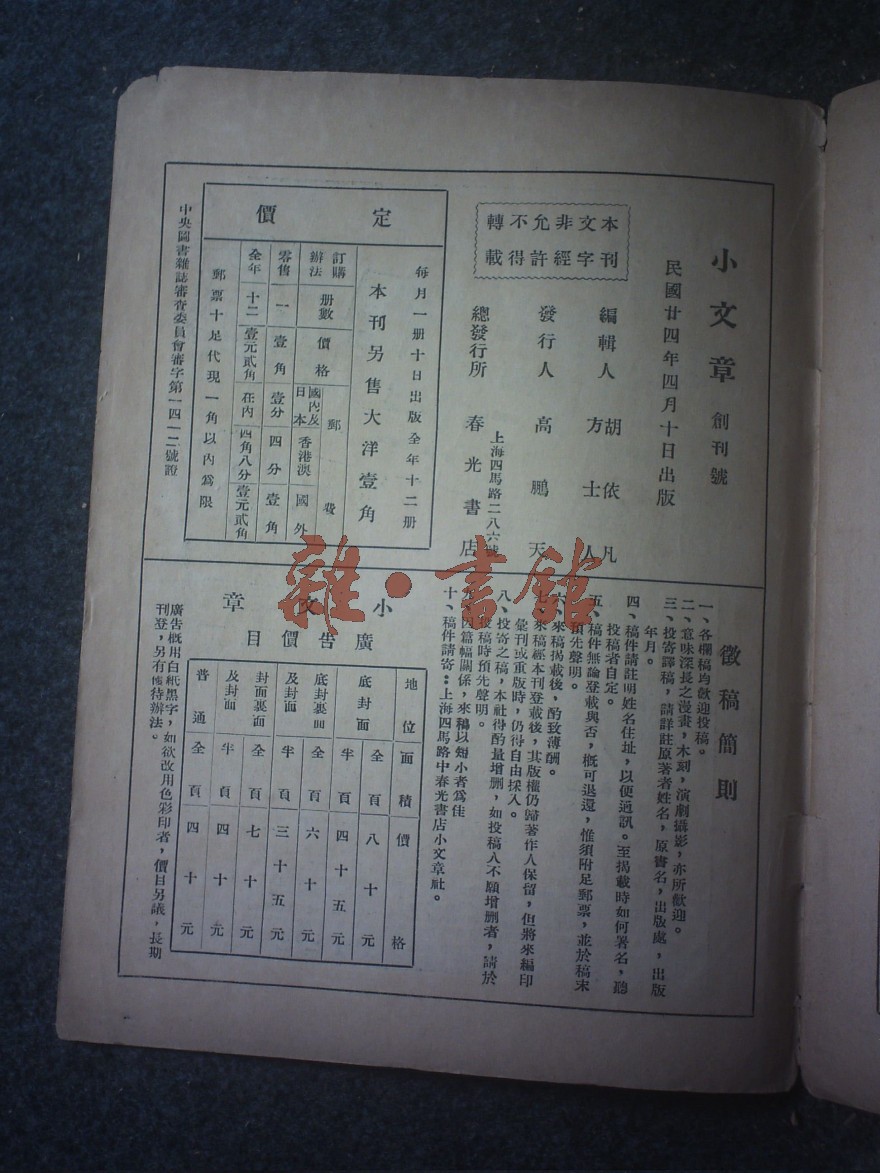 小文章 創刊號
民國廿四年四月十日出版
編輯人 胡依凡
方士人
發行人 高鵬天
上海四馬路二八六號
總發行所 春光書店
本刊
文字
非經
允許
不得
轉載
定價
每月一册十日出版全年十二册
本刊另售大洋壹角
訂購辦法 册數 價格 郵費
國內及日本 香港澳 國外
零售 一 壹角 壹分 四分 壹角
全年 十二 壹元貳角 在內 四角八分 壹元貳角
郵票十足代現一角以內爲限
中央圖書雜誌審查委員會審字第一四一二號證
徵稿簡則
一、各欄稿均歡迎投稿。
二、意味深長之漫畫，木刻，演劇攝影，亦所歡迎。
三、投寄譯稿，請詳註原著者姓名，原書名，出版處，出版
年月。
四、稿件請註明姓名住址，以便通訊。至揭載時如何署名，聽
投稿者自定。
五、稿件無論登載與否，概可退還，惟須附足郵票，並於稿末
預先聲明。
六、來稿揭載後，酌致薄酬。
七、來稿經本刊登載後，其版權仍歸著作人保留，但將來編印
彙刊或重版時，仍得自由採入。
八、投寄之稿，本社得酌量增删，如投稿人不願增删者，請於
投稿時預先聲明。
因篇幅關係，來稿以短小者爲佳
十、稿件請寄：上海四馬路中春光書店小文章社。
小文章
廣告價目
地位 面積 價格
底封面 全頁 八十元
半頁 四十五元
底封裏面及封面 全頁 六十元
半頁 三十五元
封面裏面及封面 全頁 七十元
半頁 四十元
普通 全頁 四十元
廣告概用白紙黑字，如欲改用色彩印者，價目另議，長期
刊登，另有優待辦法。
雜·書館